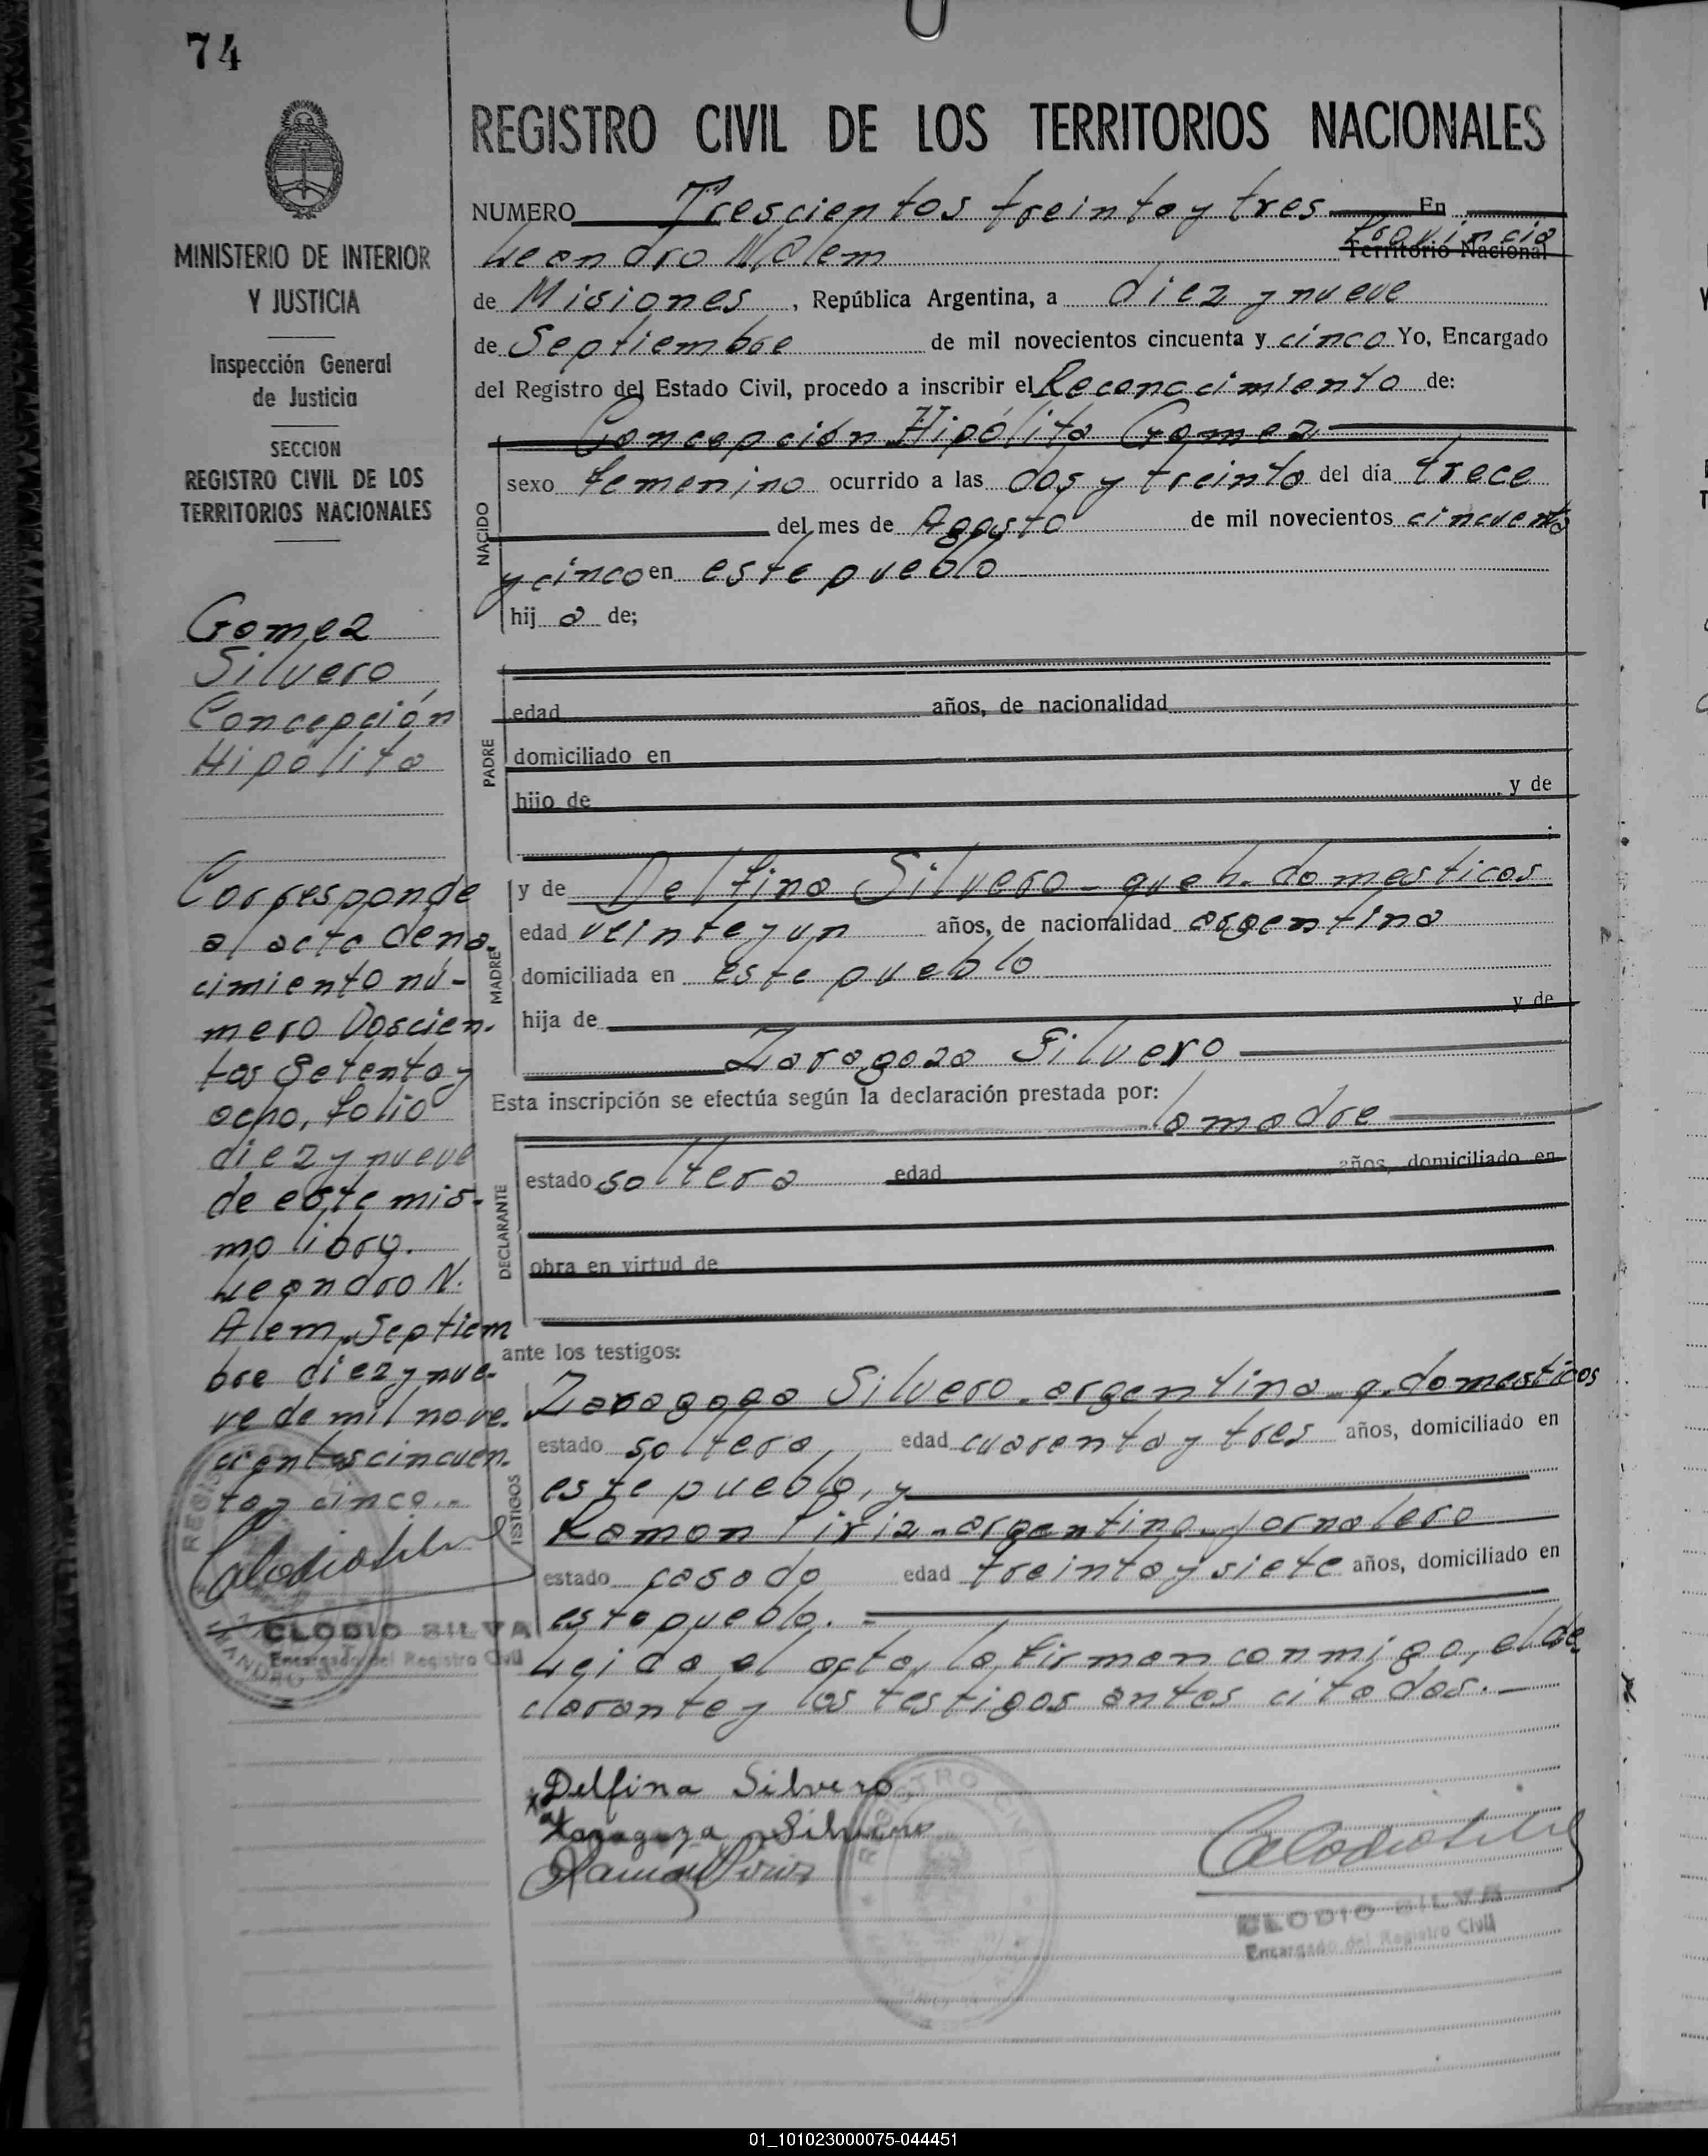 74
REGISTRO CIVIL DE LOS TERRITORIOS NACIONALES
MINISTERIO DE INTERIOR
Y JUSTICIA
Inspección General
de Justicia
SECCION
REGISTRO CIVIL DE LOS
TERRITORIOS NACIONALES
Gomez
Silvero
Concepción
Hipólita
Corresponde
al acta de na-
cimiento nú-
mero Doscien-
tos Setenta y
ocho, folio
diez y nueve
de este mis-
mo libro.
Leandro N.
Alem, Septiem
bre diez y nue-
ve de mil nove-
cientos cincuen-
ta y cinco.-
CLODIO SILVA
Encargado del Registro Civil
NUMERO Trescientos treinta y tres En
Leandro N Alem Provincia Territorio Nacional
de Misiones, República Argentina, a diez y nueve
de Septiembre de mil novecientos cincuenta y cinco Yo, Encargado
del Registro del Estado Civil, procedo a inscribir el Reconocimiento de:
NACIDO
Concepción Hipólita Gomez
sexo femenino ocurrido a las dos y treinta del día trece
del mes de Agosto de mil novecientos cincuenta
y cinco en este pueblo
hij a de;
PADRE
edad años, de nacionalidad
domiciliado en
hijo de y de
MADRE
y de Delfina Silvero - queh. domesticos
edad veinte y un años, de nacionalidad argentina
domiciliada en este pueblo
hija de y de
Zaragoza Silvero
Esta inscripción se efectúa según la declaración prestada por:
la madre
DECLARANTE
estado soltera edad años, domiciliado en
obra en virtud de
ante los testigos:
TESTIGOS
Zaragoza Silvero - argentina - q. domesticos
estado soltera, edad cuarenta y tres años, domiciliado en
este pueblo, y
Ramon Piriz - argentino - jornalero
estado casado edad treinta y siete años, domiciliado en
este pueblo. -
Leida el acta, la firman conmigo, el de-
clarante y los testigos antes citados. -
Delfina Silvero
Zaragoza Silvero
Ramon Piriz
CLODIO SILVA
Encargado del Registro Civil
01_101023000075-044451